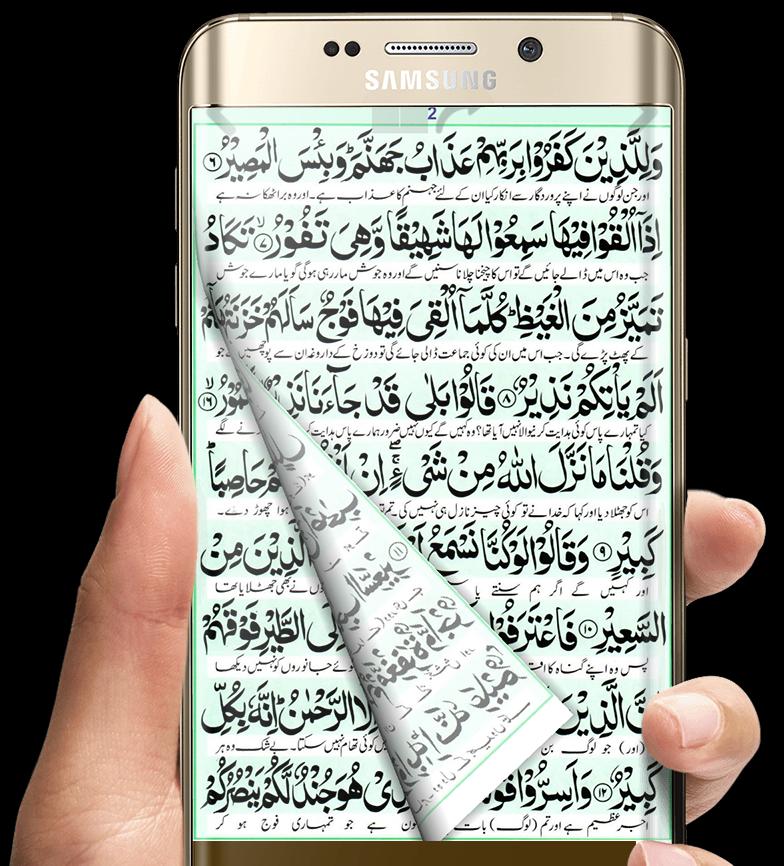 SAMSUNG
2
وَلِلَّذِيْنَ كَفَرُوْا بِرَبِّهِمْ عَذَابُ جَهَنَّمَ ؕ وَبِئْسَ الْمَصِيْرُ ۶
اور جن لوگوں نے اپنے پروردگار سے انکار کیا ان کے لئے جہنم کا عذاب ہے۔ اور وہ برا ٹھکانہ ہے
اِذَاۤ اُلْقُوْا فِيْهَا سَمِعُوْا لَهَا شَهِيْقًا وَّهِىَ تَفُوْرُ ۙ ۷ تَكَادُ
جب وہ اس میں ڈالے جائیں گے تو اس کا چیخنا چلانا سنیں گے اور وہ جوش مار رہی ہوگی گویا مارے جوش
تَمَيَّزُ مِنَ الْغَيْظِ ؕ كُلَّمَاۤ اُلْقِىَ فِيْهَا فَوْجٌ سَاَلَهُمْ خَزَنَتُهَاۤ
کے پھٹ پڑے گی۔ جب اس میں ان کی کوئی جماعت ڈالی جائے گی تو دوزخ کے داروغہ ان سے پوچھیں گے
اَلَمْ يَاْتِكُمْ نَذِيْرٌ ۸ قَالُوْا بَلٰى قَدْ جَآءَنَا ۙ ۱۶
کیا تمہارے پاس کوئی ہدایت کرنے والا نہیں آیا تھا؟ وہ کہیں گے کیوں نہیں ضرور ہمارے پاس ہدایت نے لگے
وَقُلْنَا مَا نَزَّلَ اللّٰهُ مِنْ شَىْءٍ ۖۚ اِنْ حَاصِبًا
اس کو جھٹلا دیا اور کہا کہ خدا نے تو کوئی چیز نازل ہی نہیں کی ہوا چھوڑ دے۔
كَبِيْرٍ ۹ وَقَالُوْا لَوْ كُنَّا نَسْمَعُ ۱۱ الَّذِيْنَ مِنْ
اور کہیں گے اگر ہم سنتے یا نے بھی جھٹلایا تھا
السَّعِيْرِ ۱۰ الطَّيْرِ فَوْقَهُمْ
پس وہ اپنے گناہ کا جانوروں کو نہیں دیکھا
الَّذِيْنَ الرَّحْمٰنُ ؕ اِنَّهٗ بِكُلِّ
(اور) جو لوگ بن کوئی تھام نہیں سکتا۔ بے شک وہ ہر
كَبِيْرٌ ۱۲ وَاَسِرُّوْا هُوَ جُنْدٌ لَّكُمْ يَنْصُرُكُمْ
اجر عظیم ہے اور تم (لوگ) بات ہے جو تمہاری فوج ہو کر